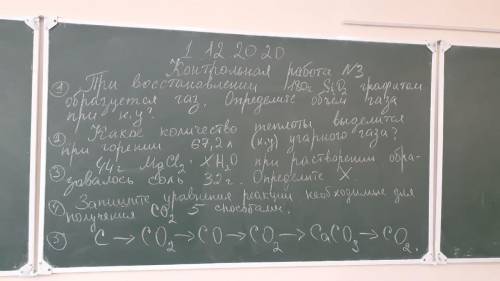 1 12 2020
Контрольная работа №3
① При восстановлении 180г SiO₂ графитом
образуется газ. Определите объем газа
при н.у?
② Какое количество теплоты выделится
при горении 67,2л (н.у) угарного газа?
③ 44г MgCl₂ · XH₂O при растворении обра-
зовалось соль 32г. Определите X
④ Запишите уравнения реакции необходимые для
получения CO₂ 5 способами.
⑤ C → CO₂ → CO → CO₂ → CaCO₃ → CO₂.